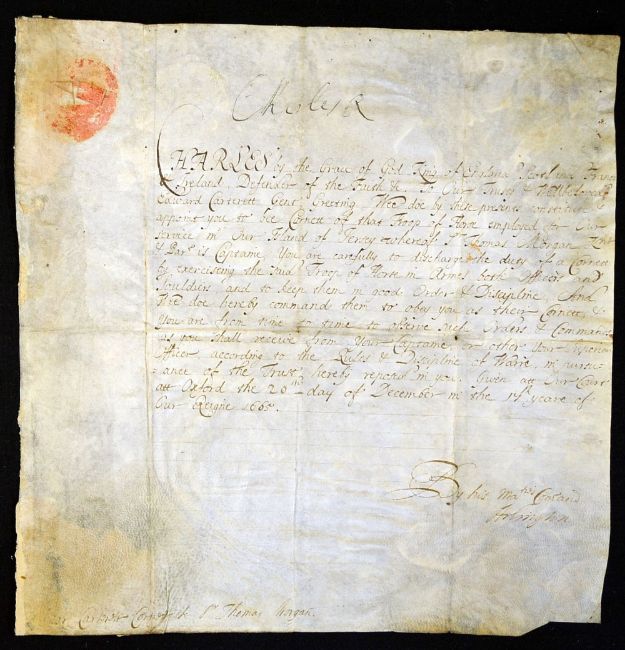 Charles R
CHARLES by the Grace of God King of England Scotland France
Ireland, Defender of the Faith &c To Our Trusty & Wellbeloved
Edward Carterett Gent Greeting. Wee doe by these presents constitute
appoint you to bee Cornett of that Troop of Horse employed for Our
service in Our Island of Jersey whereof Sr Thomas Morgan Knt
& Barnt is Captaine, You are carefully to discharge the duty of a Cornett
by exercising the said Troop of Horse in Armes both Officers and
Souldiers and to keep them in good Order & Discipline, And
Wee doe hereby command them to obey you as their Cornett, &
you are from time to time to observe such Orders & Commands
as you shall receive from your Captaine or other your Superior
Officer according to the Rules & Discipline of Warre, in pursu-
-ance of the Trust hereby reposed in you. Given att Our Court
att Oxford the 20th day of December in the 17th yeare of
Our Reigne 1665.
By his Maties Comand
Arlington
Carteret Cornet to Sr Thomas Morgan.